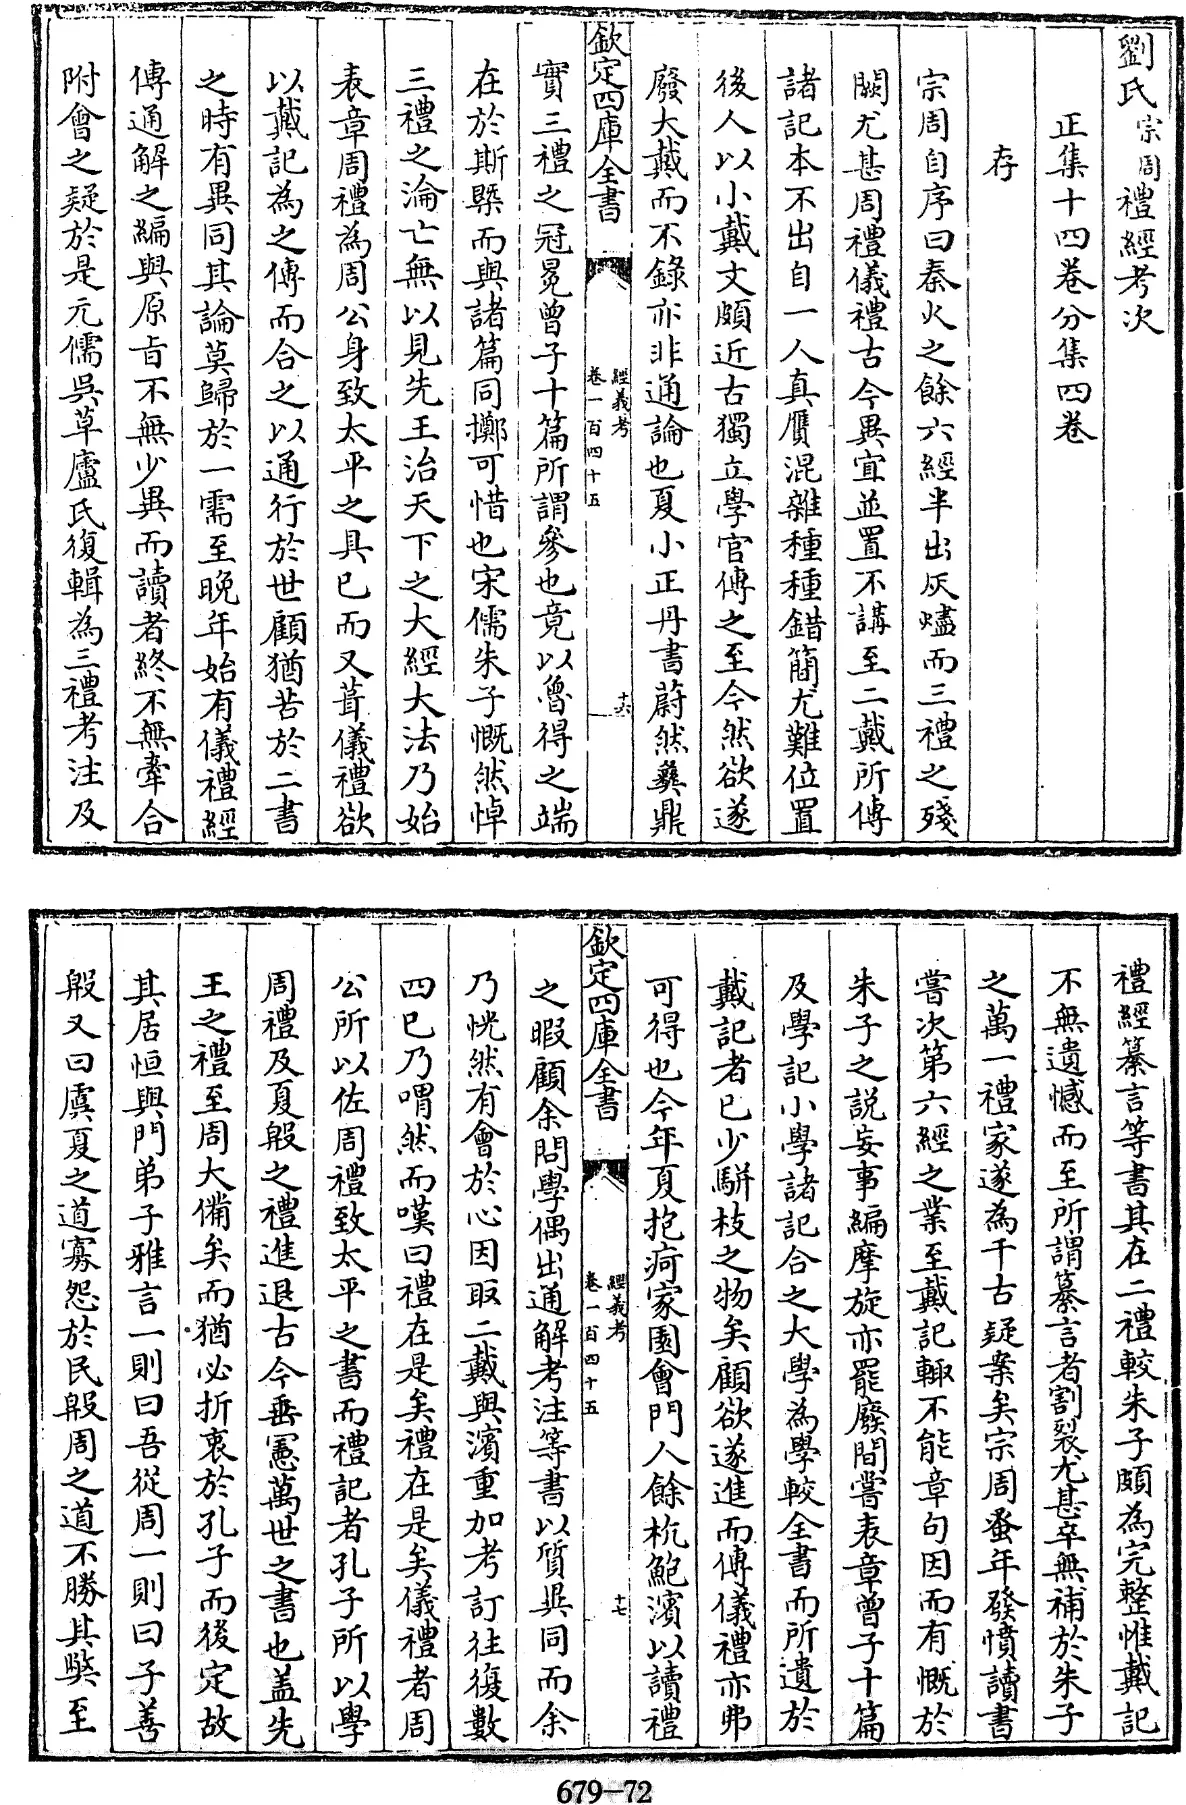 劉氏宗周禮經考次
正集十四卷分集四卷
存
宗周自序曰秦火之餘六經半出灰燼而三禮之殘
闕尤甚周禮儀禮古今異宜並置不講至二戴所傳
諸記本不出自一人真贋混雜種種錯簡尤難位置
後人以小戴文頗近古獨立學官傳之至今然欲遂
廢大戴而不錄亦非通論也夏小正丹書蔚然彝鼎
欽定四庫全書
經義考
卷一百四十五
十六
實三禮之冠冕曾子十篇所謂參也竟以魯得之端
在於斯槩而與諸篇同擲可惜也宋儒朱子慨然悼
三禮之淪亡無以見先王治天下之大經大法乃始
表章周禮為周公身致太平之具已而又葺儀禮欲
以戴記為之傳而合之以通行於世顧猶苦於二書
之時有異同其論莫歸於一需至晚年始有儀禮經
傳通解之編與原旨不無少異而讀者終不無牽合
附會之疑於是元儒吳草廬氏復輯為三禮考注及
禮經纂言等書其在二禮較朱子頗為完整惟戴記
不無遺憾而至所謂纂言者割裂尤甚卒無補於朱子
之萬一禮家遂為千古疑案矣宗周蚤年發憤讀書
嘗次第六經之業至戴記輙不能章句因而有慨於
朱子之説妄事編摩旋亦罷廢間嘗表章曾子十篇
及學記小學諸記合之大學為學較全書而所遺於
戴記者已少駢枝之物矣顧欲遂進而傳儀禮亦弗
可得也今年夏抱疴家園會門人餘杭鮑濱以讀禮
欽定四庫全書
經義考
卷一百四十五
十七
之暇顧余問學偶出通解考注等書以質異同而余
乃恍然有會於心因取二戴與濱重加考訂往復數
四已乃喟然而嘆曰禮在是矣禮在是矣儀禮者周
公所以佐周禮致太平之書而禮記者孔子所以學
周禮及夏殷之禮進退古今垂憲萬世之書也蓋先
王之禮至周大備矣而猶必折衷於孔子而後定故
其居恒與門弟子雅言一則曰吾從周一則曰子善
殷又曰虞夏之道寡怨於民殷周之道不勝其弊至
679-72